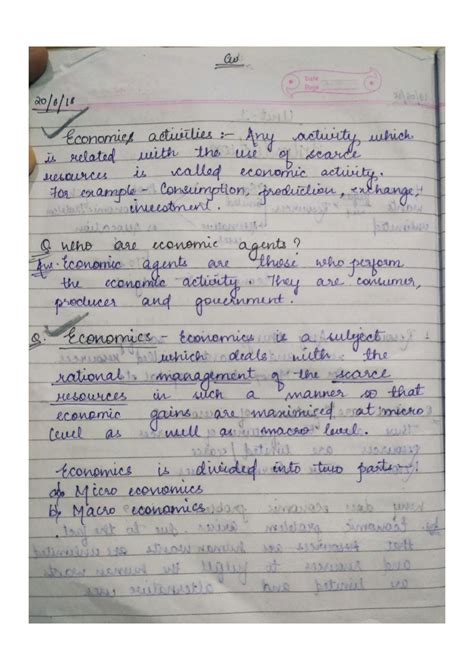 CW
Date
Page
20/6/18
Economics activities :- Any activity which
is related with the use of scarce
resources is called economic activity.
For example - Consumption, production, exchange,
investment.
Q who are economic agents?
Ans. Economic agents are those who perform
the economic activity. They are consumer,
producer and government.
Q. Economics - Economics is a subject
which deals with the
rational management of the scarce
resources in such a manner so that
economic gains are maximised at micro
level as well as macro level.
Economics is divided into two parts -
a) Micro economics
b) Macro economics